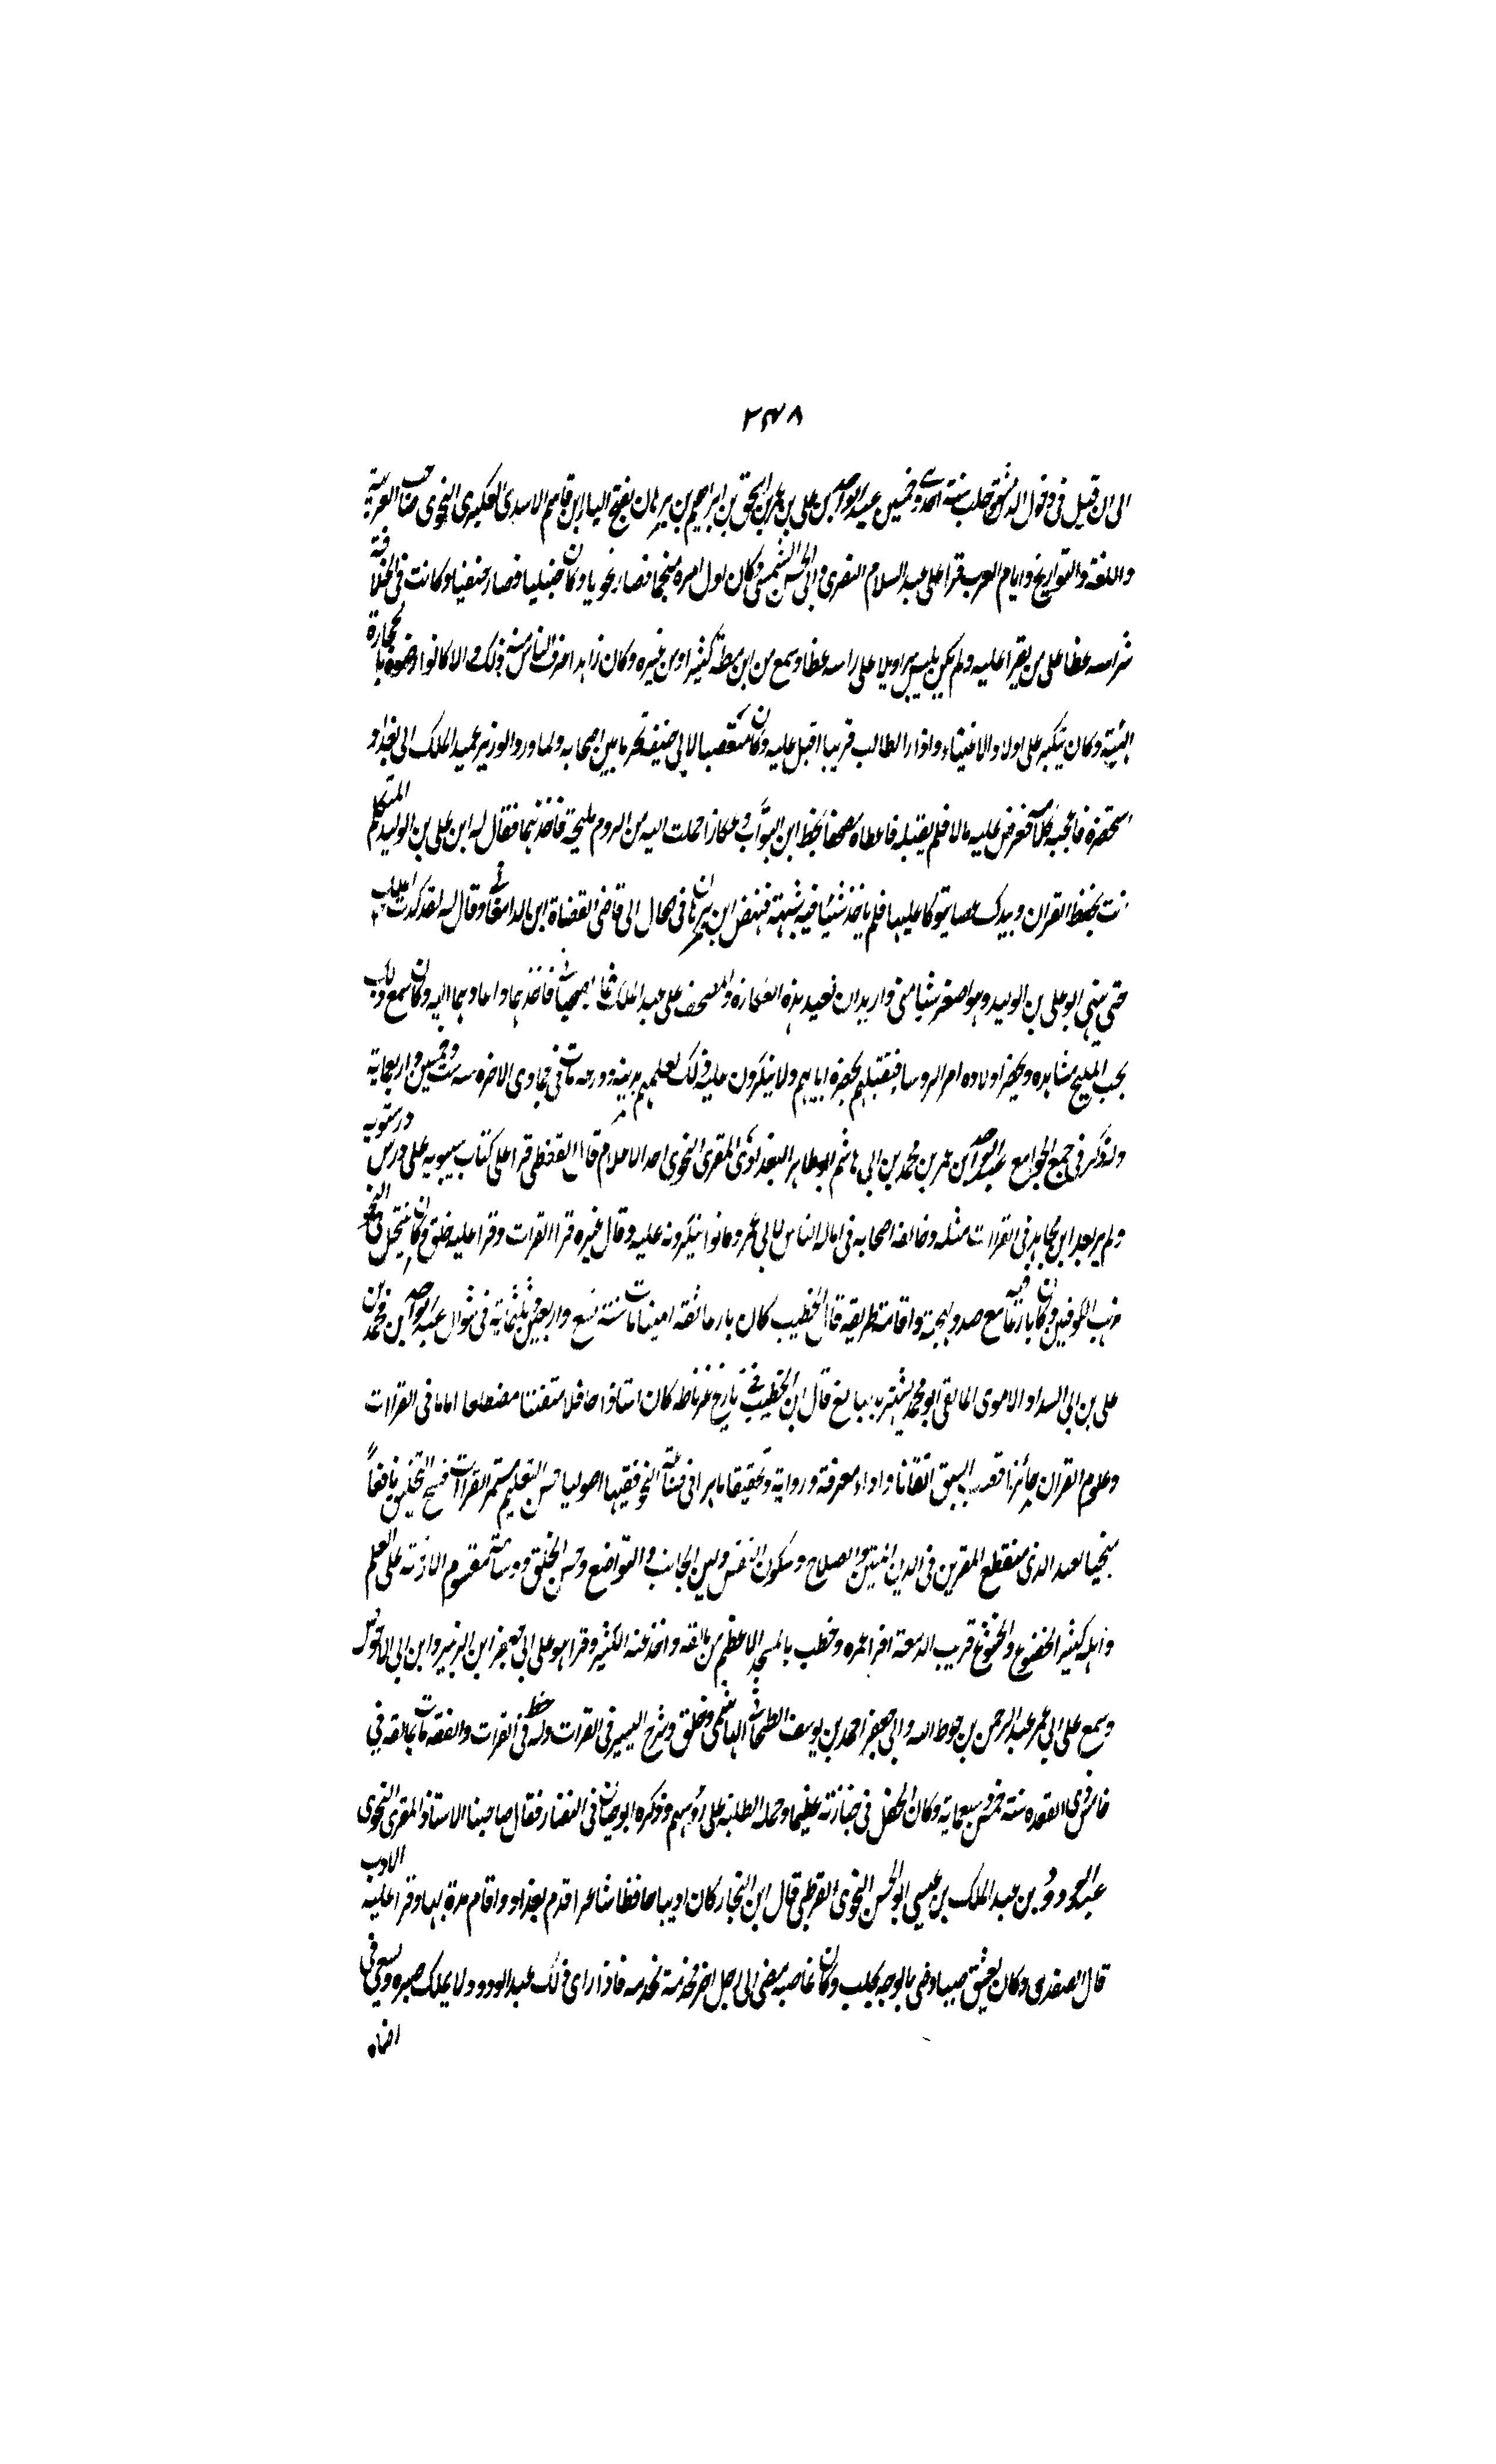 ٢٣٨
الى ان قيل فى دخول الدمشق حلب سنة احدى وخمسين عبد الواحد بن على بن عمر بن اسحق بن ابراهيم بن برهان بفتح الباء ابن قاسم الاسدى العكبرى النحوى صاحب العربية
واللغة والتواريخ وايام العرب قرا على عبد السلام البصرى وابى الحسن الشمسى وكان اول امره منجما فصار نحويا وكان حنبليا فصار حنفيا وكانت فى اخلاقه
شراسة على من يقرا عليه ولم يكن يلبس سراويلا على راسه غطا وسمع من ابن بطة كثيرا ومن غيره وكان زاهدا عرف الناس منه ذلك والا كانوا رموه بالحجارة
لهيئته وكان يتكبر على اولاد الاغنياء ولو راى الطالب قريبا اقبل عليه وكان متعصبا لابى حنيفة محترما بين اصحابه ولما ورد الوزير عميد الملك الى بغداد
استحضره فاعجبه كلامه فعرض عليه مالا فلم يقبله فاعطاه مصحفا بخط ابن البواب وعكازا حملت اليه من الروم مليحة فاخذهما فقال له ابن على بن الوليد المتكلم
انت تحفظ القران وبيدك عصا تتوكا عليها فلم ياخذ شيئا فيه شبهة فنهض ابن برهان فى الحال الى قاضى القضاة ابن الدامغانى وقال له لقد كدت اهلك
حتى نبهنى ابو على بن الوليد وهو اصغر سنا منى واريد ان تعيد هذه العكازة والمصحف على عميد الملك فما يصحبانى فاخذهما واعادهما اليه وكان مع ذلك
يحب المليح مشاهدة ويحضر اولاد الامراء والروسا فيقبلهم بحضرة ابايهم ولا ينكرون عليه ذلك لعلمهم بدينه وورعه مات فى جمادى الاخرة سنة ست وخمسين واربعماية
وله ذكر فى جمع الجوامع عبد الواحد بن عمر بن محمد بن ابى هاشم ابو طاهر البغدادى المقرى النحوى احد الاعلام قال القفطى قرا على كتاب سيبويه على درستويه
ولم ير بعد ابن مجاهد فى القراات مثله وخالف اصحابه فى امالة الناس لابى عمرو وكانوا ينكرونه عليه وقال غيره قرا القرات وقرا عليه خلق وكان ينتحل فى النحو
مذهب الكوفيين وكان بارعا فيه مع صدق لهجة واقامة طريقة قال الخطيب كان بارعا ثقة امينا مات سنة تسع واربعين وثلثماية فى شوال عبد الواحد بن محمد بن
على بن ابى السداد الاموى المالقى ابو محمد يشتهر بالبايع قال ابن الخطيب فى تاريخ غرناطة كان استاذا حافلا متفننا مضطلعا اماما فى القراات
وعلوم القران حائزا قصب السبق اتقانا واداء ومعرفة ورواية وتحقيقا ماهرا فى صناعة النحو فقيها اصوليا حسن التعليم مستمر القراات فسيح التحليق نافعاً
منجبا بعيد المدى منقطع القرين فى الدين المتين والصلاح وسكون النفس ولين الجانب والتواضع وحسن الخلق ووسامة مقسوم الازمنة على العلم
واهله كثير الخضوع والخشوع قريب الدمعة اقرا عمره وخطب بالمسجد الاعظم من مالقة واخذ عنه الكثير وقرا هو على ابى جعفر ابن الزبير وابن ابى الاحوص
وسمع على ابى عمر عبد الرحمن بن حوط الله وابى جعفر احمد بن يوسف الطنجالى الهاشمى وخلق وشرح التيسير فى القرات وله خط فى القرات والفقه مات بمالقة فى
خامس ذى القعدة سنة خمس وسبعماية وكان الحفل فى جنازته عظيما وحمله الطلبة على رؤسهم وذكره ابو حيان فى النضار فقال صاحبنا الاستاذ المقرى النحوى
عبد الودود بن عبد الملك بن عيسى ابو الحسن النحوى القرطبى قال ابن النجار كان اديبا حافظا شاعرا قدم بغداد واقام مدة بها وقرا عليه الادب
قال الصفدى وكان يعشق صبيا وضى الوجه بحلب وكان غاصبه مضى الى رجل اخر مخدمة تخدمه فاذا راى ذلك عبد الودود لا يملك صبره ويسعى فى